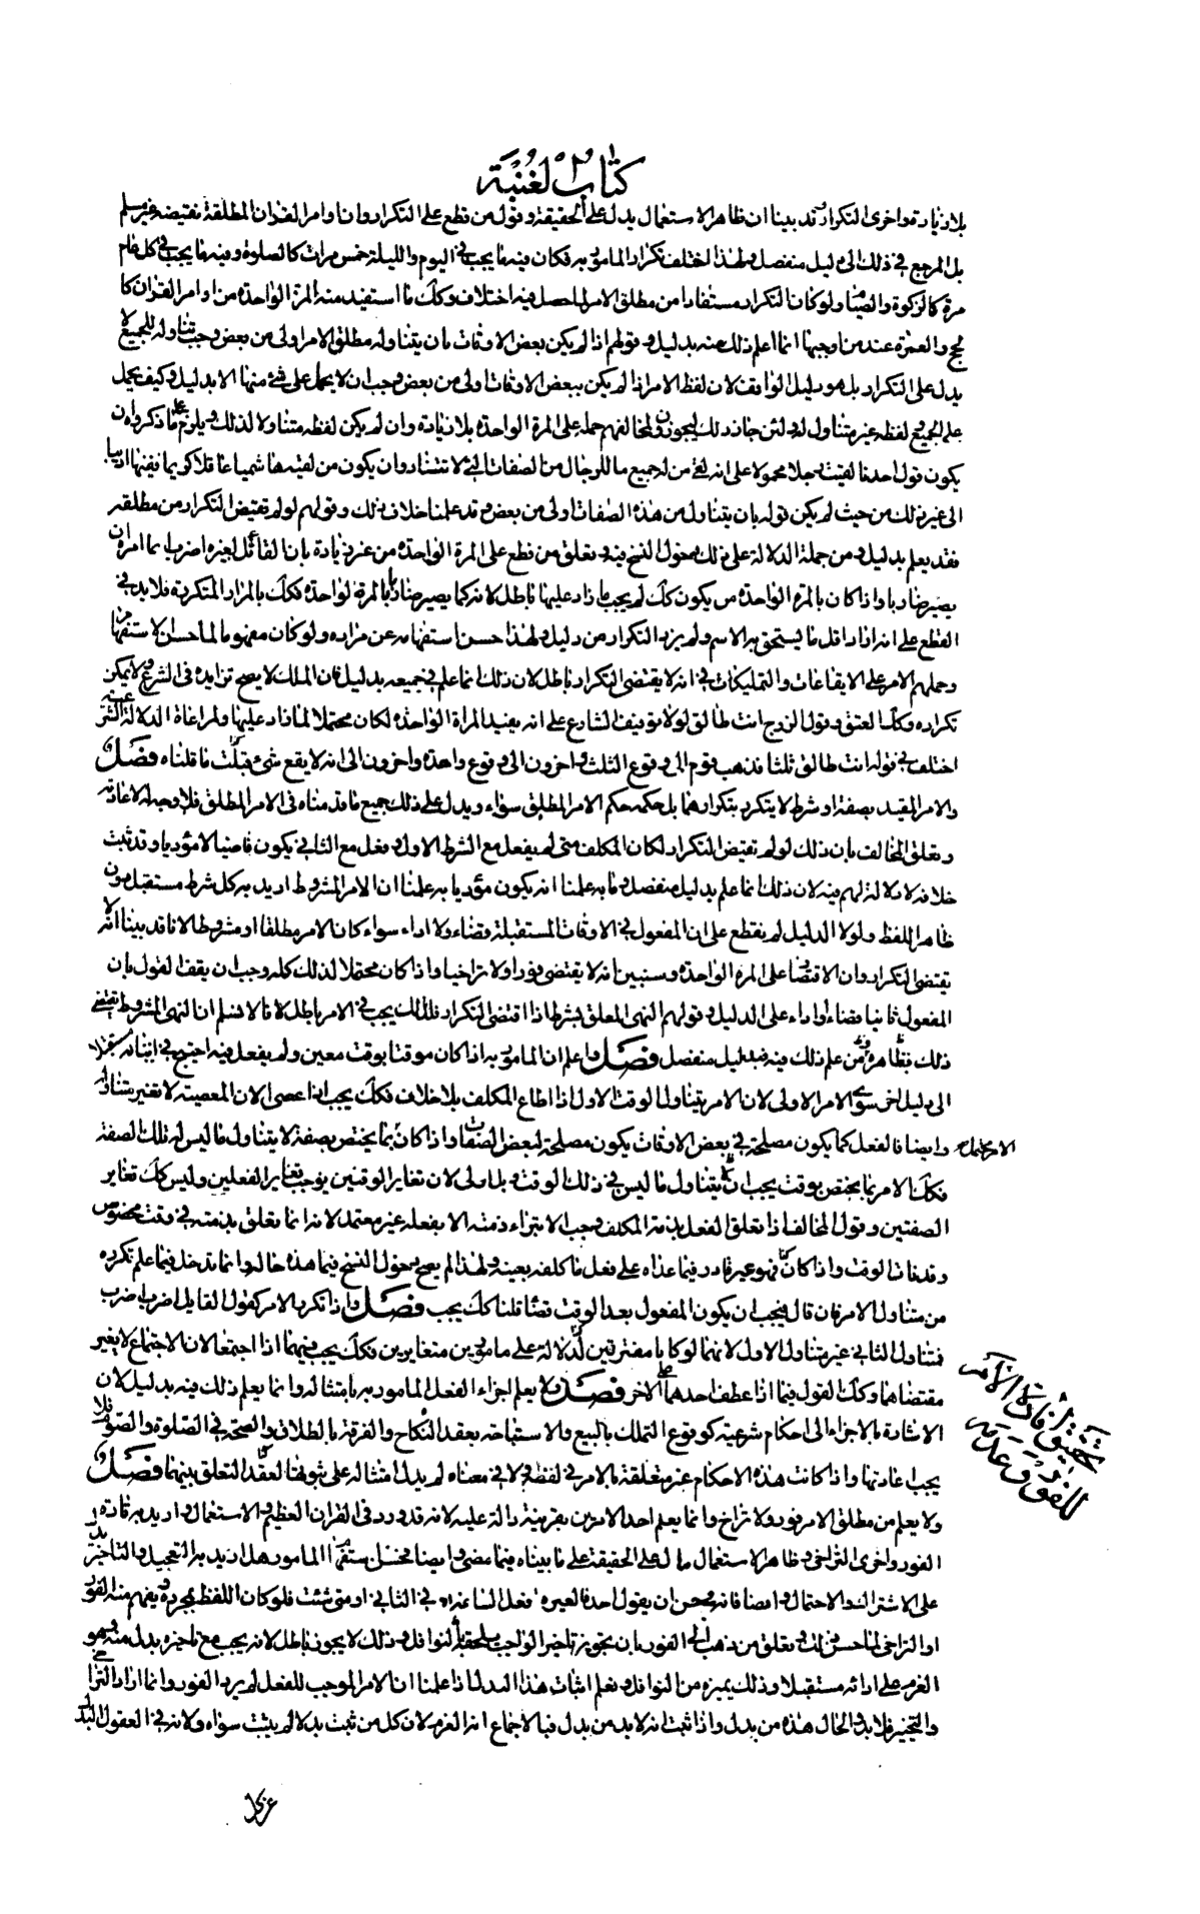 كتاب الغنية
بلا زيادة واخرى التكرار قد بينا ان ظاهر الاستعمال يدل على الحقيقة وقول من قطع على التكرار وان اوامر القران المطلقة تقتضيه غير مسلم
بل المرجع في ذلك الى دليل منفصل ولهذا اختلف تكرار المامور به فكان فيه ما يجب في اليوم والليلة خمس مرات كالصلوة وفيه ما يجب في كل عام
مرة كالزكوة والصيام ولو كان التكرار مستفادا من مطلق الامر لما حصل فيه اختلاف وكك ما استفيد منه المرة الواحدة من اوامر القران كا
لحج والعمرة عند من اوجبها انما اعلم ذلك منه بدليل وقولهم اذا لم يكن بعض الاوقات بان يتناوله مطلق الامر اولى من بعض وجب تناوله للجميع لا
يدل على التكرار بل هو دليل الواقف لان لفظ الامر اذا لم يكن ببعض الاوقات اولى من بعض وجب ان لا يحمل على شئ منها الا بدليل وكيف يحمل
على الجميع ولفظه غير متناول له ولئن جاز ذلك ليجوزن لمخالفهم حمله على المرة الواحدة بلا زيادة وان لم يكن لفظه متناولا لذلك ويلزم على ما ذكروه ان
يكون قول احدنا لقيت رجلا محمولا على انه لقي من له جميع ما للرجال من الصفات التي لا تتنافى وان يكون من لقيه هاشميا عاقلا كريما نفيها اديبا
الى غير ذلك من حيث لم يكن قوله بان يتناول من هذه الصفات اولى من بعض وقد علمنا خلاف ذلك وقولهم لو لم يقتض التكرار من مطلقه
فقد يعلم بدليل ومن جملة الدلالة على ذلك دخول النسخ فيه وتعلق من قطع على المرة الواحدة من غير زيادة بان القائل لغيره اضرب انما امره ان
يصير ضاربا واذا كان بالمرة الواحدة من يكون كك لم يجب ما زاد عليها باطل لانه كما يصير ضاربا بالمرة الواحدة فكك بالمرار المتكررة فلا بد في
القطع على انه اراد اقل ما يستحق به الاسم ولم يرد التكرار من دليل ولهذا حسن استفهامه عن مراده ولو كان مفهوما لما حسن الاستفهام
وحملهم الامر على الايقاعات والتمليكات في انه لا يقتضي التكرار باطل لان ذلك انما علم في جميعه بدليل فان الملك لا يصح تزايده في الشرع ولا يمكن
تكراره وكك العتق وقول الزوج انت طالق لولا توقيف الشارع على انه يفيد المرة الواحدة لكان محتملا لما زاد عليها ولمراعاة الدلالة الشرعية
اختلف في قوله انت طالق ثلثا فذهب قوم الى وقوع الثلث واخرون الى وقوع واحدة واخرون الى انه لا يقع شئ فثبت ما قلناه فصل
والامر المقيد بصفة او شرط لا يتكرر بتكرارهما بل حكمه حكم الامر المطلق سواء ويدل على ذلك جميع ما قدمناه في الامر المطلق فلا وجه لاعادته
وتعلق المخالف بان ذلك لو لم يقتض التكرار لكان المكلف متى لم يفعل مع الشرط الاول وفعل مع الثاني يكون قاضيا لا مؤديا وقد ثبت
خلافه لا دلالة لهم فيه لان ذلك انما علم بدليل منفصل وما به علمنا انه يكون مؤديا به علمنا ان الامر المشروط اريد به كل شرط مستقبل دون
ظاهر اللفظ ولولا الدليل لم يقطع على ان المفعول في الاوقات المستقبلة قضاء ولا اداء سواء كان الامر مطلقا او مشروطا لانا قد بينا انه لا
يقتضي التكرار وان الاقتصار على المرة الواحدة وسنبين انه لا يقتضي فورا ولا تراخيا واذا كان محتملا لذلك كله وجب ان يقف القول بان
المفعول ثانيا قضاء او اداء على الدليل وقولهم النهي المعلق بشرط اذا اقتضى التكرار فكذلك يجب في الامر باطل لانا لا نسلم ان النهي المشروط يقتضي
ذلك بظاهره ومن علم ذلك فيه فبدليل منفصل فصل واعلم ان المامور به اذا كان موقتا بوقت معين ولم يفعل فيه احتيج في اتيانه مستقبلا
الى دليل اخر سوى الامر الاولى لان الامر يتناول الوقت الاول اذا اطاع المكلف بلا خلاف فكك يجب اذا عصى لان المعصية لا تغير متناول
الامر وايضا فالفعل كما يكون مصلحة في بعض الاوقات يكون مصلحة لبعض الصفات واذا كان ما يختص بصفة لا يتناول ما ليس له تلك الصفة
فكك الامر بما يختص بوقت يجب ان لا يتناول ما ليس في ذلك الوقت بل اولى لان تغاير الوقتين يوجب تغاير الفعلين وليس كك تغاير
الصفتين وقول المخالف اذا تعلق الفعل بذمة المكلف وجب الا تبراء ذمته الا بفعله غير معتمد لانه انما تعلق بذمته في وقت مخصوص
وقد فات الوقت واذا كان كك فهو غير قادر فيما عداه على فعل ما كلفه بعينه ولهذا لم يصح دخول النسخ فيما هذه حاله وانما تدخل فيما علم تكرره
من متناول الامر فان قال فيجب ان يكون المفعول بعد الوقت قضاء قلنا كك يجب فصل واذا تكرر الامر كقول القايل اضرب اضرب
فتناول الثاني غير متناول الاول لانهما لو كانا مفترقين لدلا على مامورين متغايرين فكك يجب فيهما اذا اجتمعا لان الاجتماع لا يغير
مقتضاهما وكك القول فيما اذا عطف احدهما على الاخر فصل ولا يعلم اجزاء الفعل المامور به بامتثاله وانما يعلم ذلك فيه بدليل لان
الاشارة بالاجزاء الى احكام شرعية كوقوع التملك بالبيع والاستباحة بعقد النكاح والفرقة بالطلاق والصحة في الصلوة والصوم فلا
يجب اعادتها واذا كانت هذه الاحكام غير متعلقة بالامر في لفظه ولا في معناه لم يدل امتثاله على ثبوتها لفقد التعلق بينهما فصل
ولا يعلم من مطلق الامر فور ولا تراخ وانما يعلم احد الامرين بقرينة دالة عليه لانه قد ورد في القران العظيم والاستعمال واريد به تارة
الفور واخرى التراخي وظاهر الاستعمال دال على الحقيقة على ما بيناه فيما مضى وايضا يحسن استفهام المامور هل اريد به التعجيل والتاخير
على الاشتراك والاحتمال وايضا فانه يحسن ان يقول احدنا لغيره افعل الساعة او في الثاني او متى شئت فلو كان اللفظ بمجرده يفهم منه الفور
او التراخي لما حسن ذلك وتعلق من ذهب الى الفور بان تجويز تاخير الواجب يلحقه بالنوافل وذلك لا يجوز باطل لانه يجب مع تاخيره بدل منه وهو
العزم على ادائه مستقبلا وذلك يميزه من النوافل ونعلم اثبات هذا البدل اذا علمنا ان الامر الموجب للفعل لم يرد الفور وانما اراد التراخي
والتخيير فلا بد والحال هذه من بدل واذا ثبت انه لا بد من بدل فبالاجماع انه العزم لان كل من ثبت بدلا لم يثبت سواه ولانه في العقول البدل
تحقيق افادة الامر
للفور وعدمه
عن كل